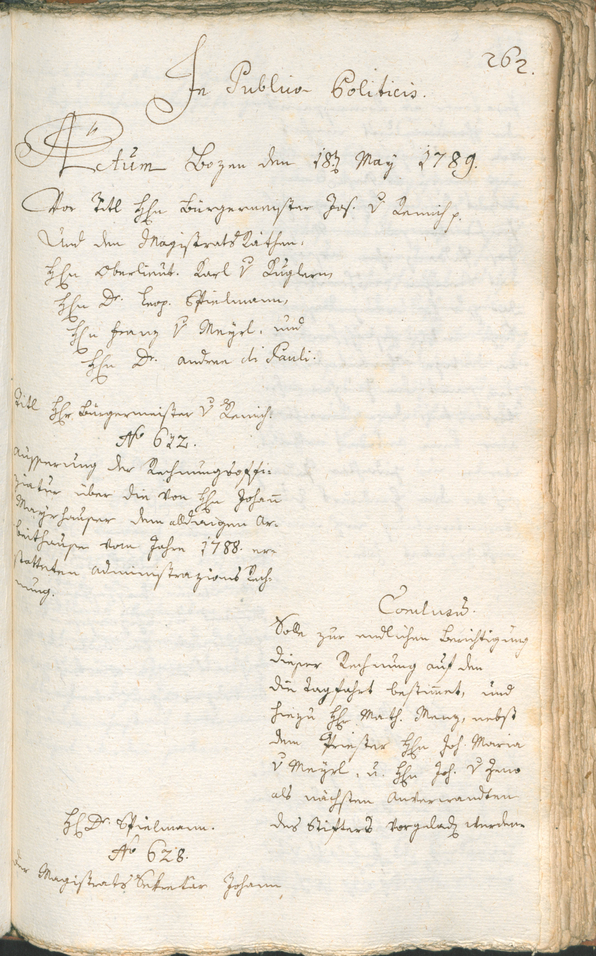 262.
In Publico Politicis.
Actum Bozen den 18ᵗ May 1789.
Vor Titl Hhn Bürgermeister Jos. v Remich p.
Und den Magistrats Räthen.
Hhn Oberlieut. Karl v Kuglern,
Hhn Dr. Leop. Spielmann,
Hhn Franz v Mayrl, und
Hhn Dr. Andree di Pauli.
Titl Hhr Bürgermeister v Remich.
No 627.
Äusserung der Rechnungsoffi-
ziatur über die von Hhn Johañ
Mayrhauser dem alldaigen Ar-
beithause vom Jahre 1788. er-
statteten Administrazions Rech-
nung.
Conlusum.
Solle zur endlichen Berichtigung
dieser Rechnung auf den
die Tagfahrt bestimmet, und
hiezu Hhr Math. Menz, nebst
dem Priester Hhn Joh. Maria
v Mayrl, u. Hhn Joh. v Zeno
als nächsten Anverwandten
des Stifters vorgeladen werden
Hhr Dr. Spielmann.
No 628.
Der Magistrats Sekretär Johann